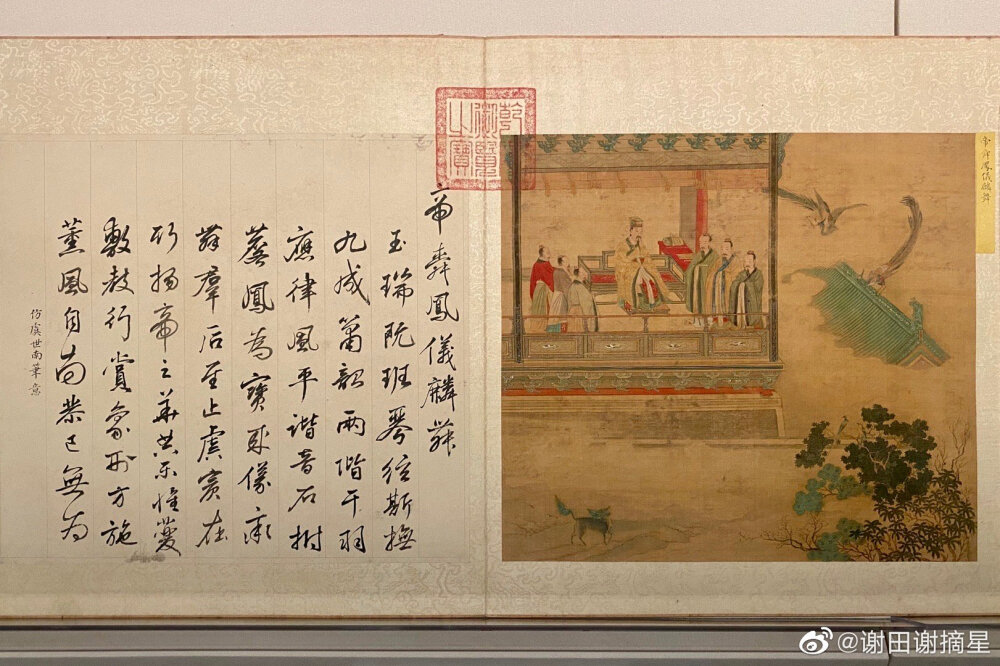 帝舜鳳儀麟舞
乾隆御覽之寶
帝舜鳳儀麟舞
玉瑞既班琴弦斯撫
九成簫韶兩階干羽
應律風平諧音石拊
鳳為寶來儀
舞群后至止虞賓在
揚帝之華共樂惟
敷教行賞象刑方施
薰風自南恭己無為
仿虞世南筆意
@谢田谢摘星